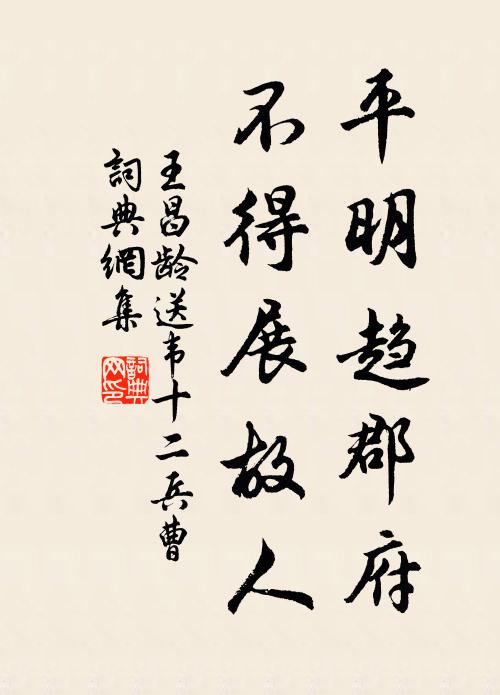 平明趋郡府
不得展故人
王昌龄送韦十二兵曹
詞典網集
詞典网印